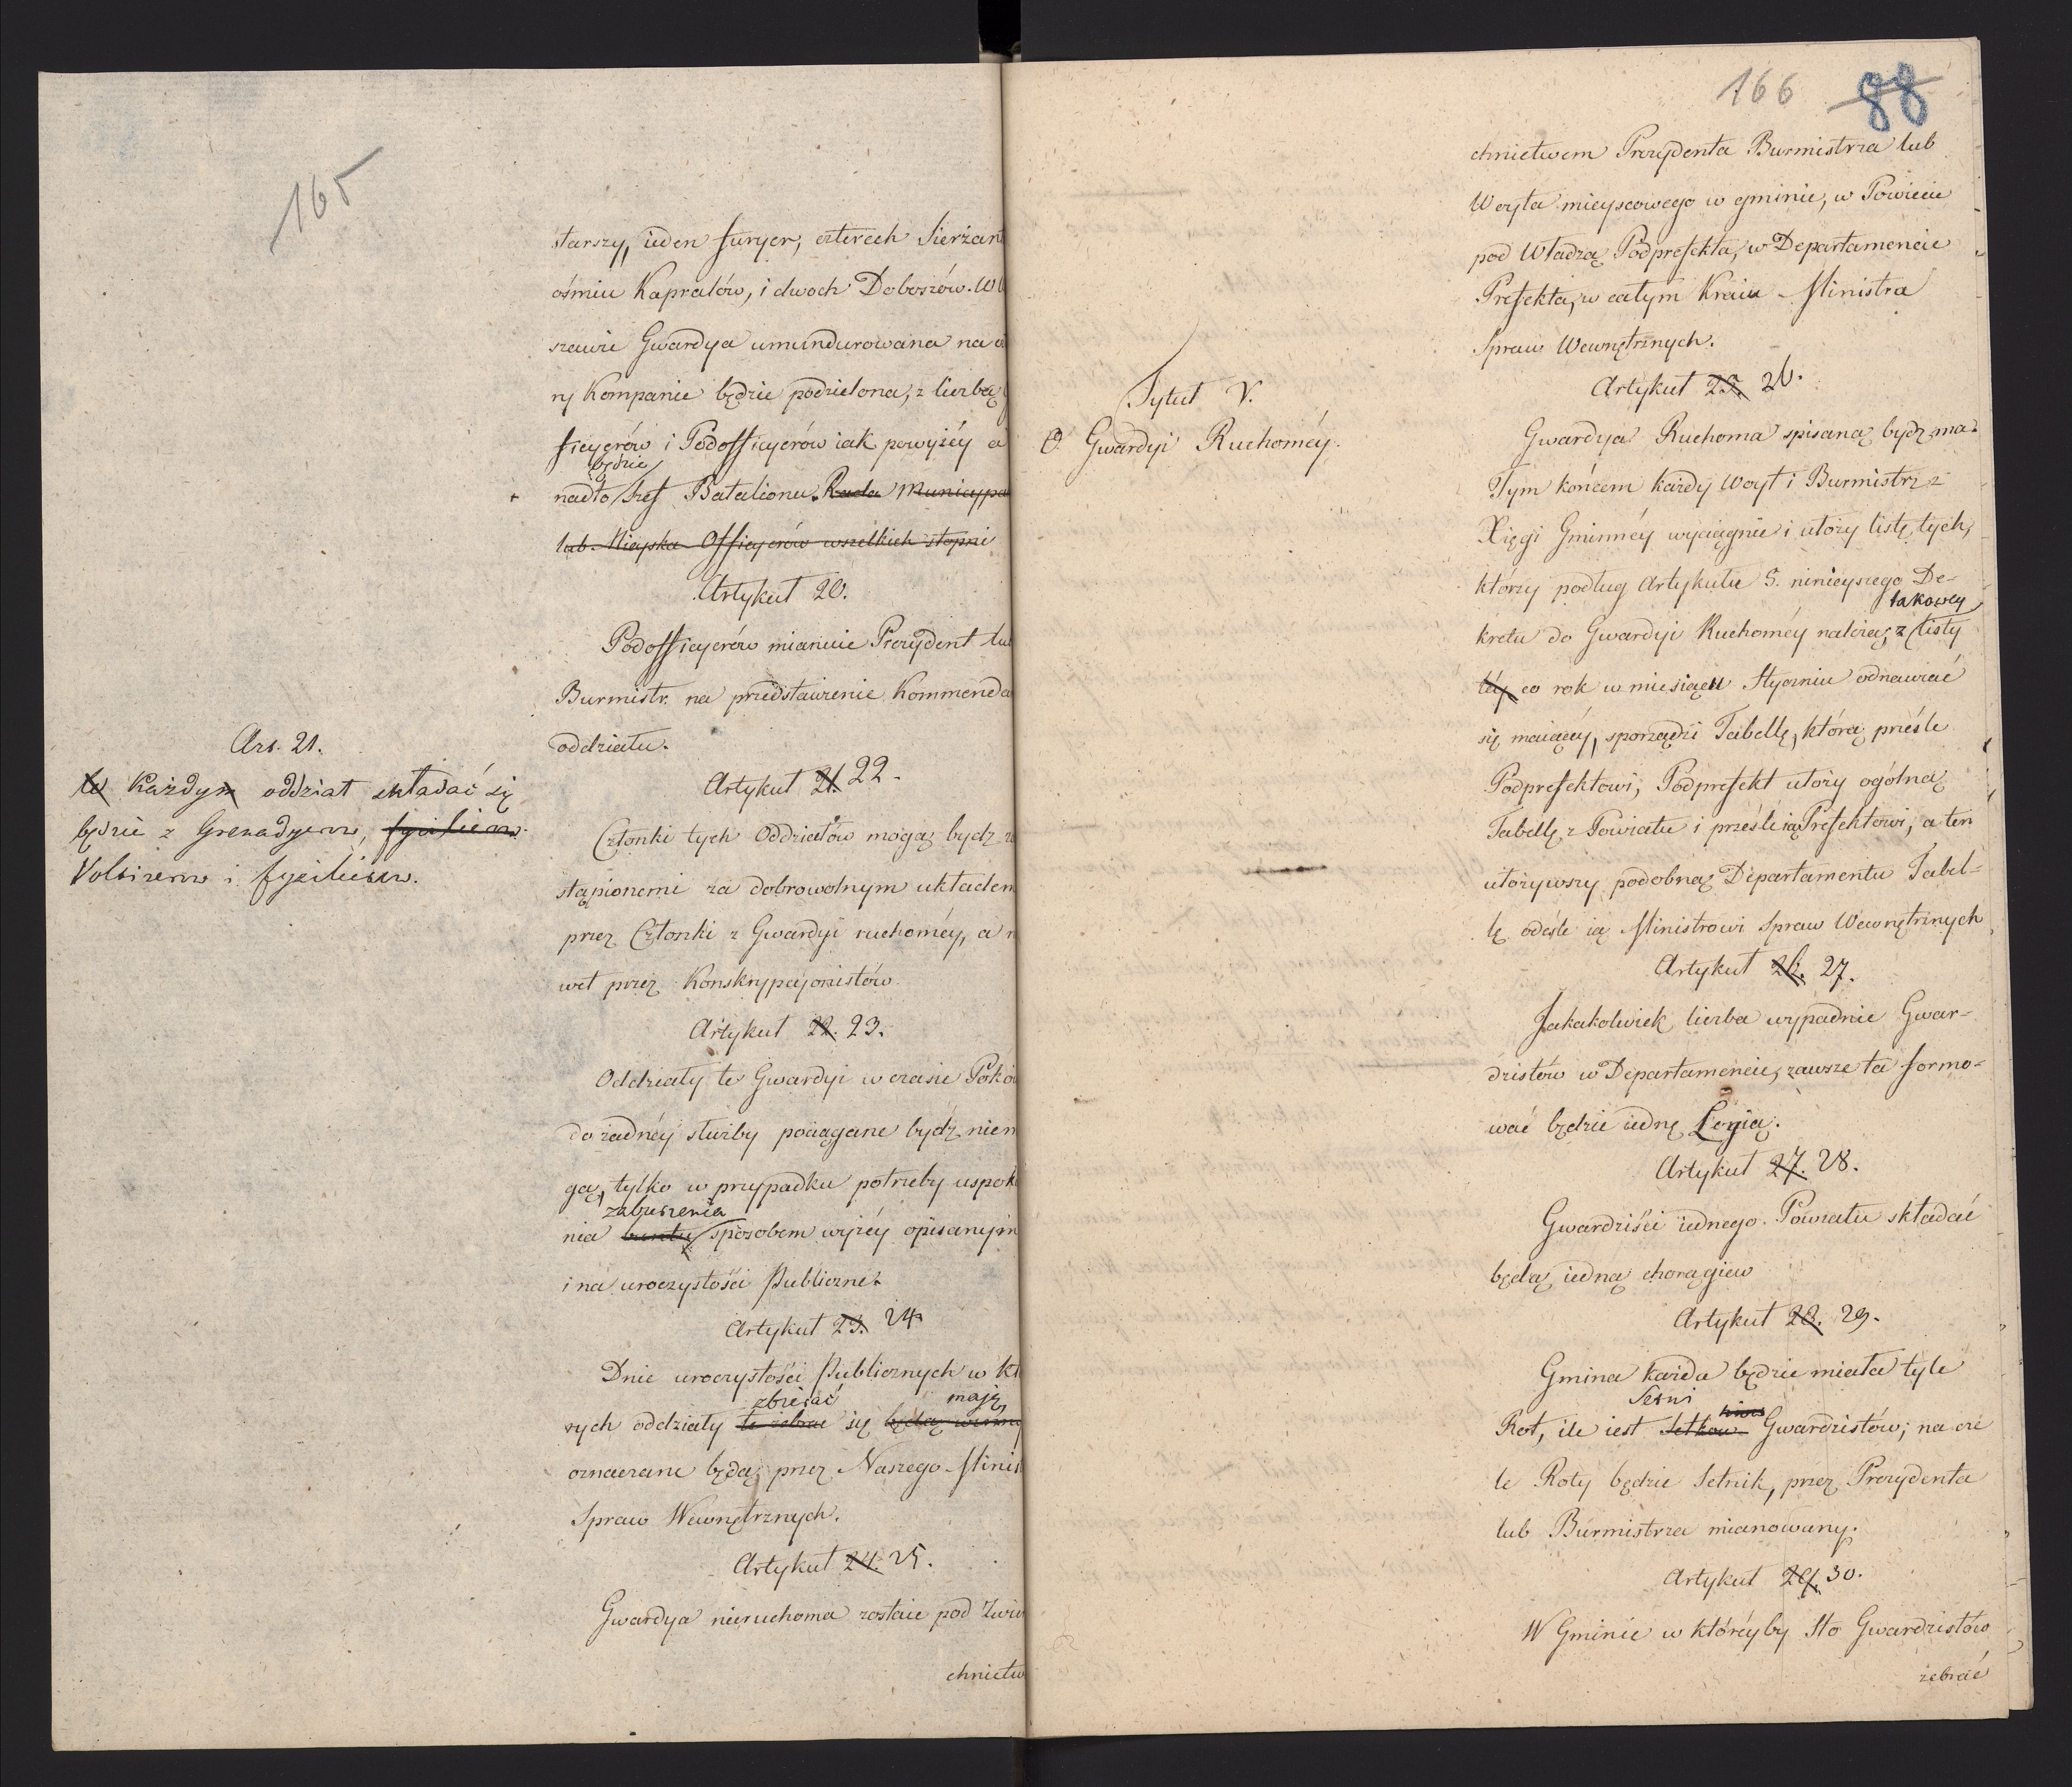 165
starszy, ieden furyer, czterech Sierżan
ośmiu Kapralów, i dwoch Doboszów. W
szawie Gwardya umundurowana na
ry Kompanie będzie podzielona, z liczbą
ficyerów i Podofficyerów iak powyżéy a
będzie
nadto Szef Batalionu. Rada Municypa
lub Mieyska Officyerów wszelkich stopni
Artykuł 20.
Podofficyerów mianuie Prezydent lub
Burmistr. na przedstawienie Kommenda
oddziału.
Art. 21.
w Każdym oddział składać się
będzie z Grenadyerow, fyzilierow
Voltizerow i fyzilierow.
Artykuł 21. 22.
Członki tych Oddziałów mogą bydz za
stąpionemi za dobrowolnym układem
przez Członki z Gwardyi ruchoméy, a n
wet przez Konskrypcyonistów.
Artykuł 22. 23.
Oddziały te Gwardyi w czasie Poko
do żadnéy służby pociągane bydź niem
gą, tylko w przypadku potrzeby uspoko
zaburzenia
nia buntu sposobem wyżéy opisanym
i na uroczystości Publiczne.
Artykuł 23. 24
Dnie uroczystości Publicznych w kt
zbierać mają
rych oddziały te zebrac się będą winny
oznaczane będą przez Naszego Minis
Spraw Wewnętrznych.
Artykuł 24. 25.
Gwardya nieruchoma zostaie pod Zwie
chnictw
166 88
chnictwem Prezydenta Burmistrza lub
Woyta mieyscowego w gminie, w Powiecie
pod Władzą Podprefekta, w Departamencie
Prefekta, w całym Kraiu Ministra
Spraw Wewnętrznych.
Tytuł V.
O Gwardyi Ruchoméy.
Artykuł 25. 26.
Gwardya Ruchoma spisaną bydz ma.
Tym końcem każdy Woyt i Burmistrz z
Xięgi Gminnéy wyciągnie i ułoży listę tych,
którzy podług Artykułu 5. ninieyszego De-
takowey
kretu do Gwardyi Ruchoméy należą; z listy
téy co rok w miesiącu Styczniu odnawiać
się maiącéy, sporządzi Tabellę, którą prześle
Podprefektowi; Podprefekt ułoży ogólną
Tabellę z Powiatu i prześle ią Prefektowi, a ten
ułożywszy podobną Departamentu Tabel-
lę odeśle ią Ministrowi Spraw Wewnętrznych
Artykuł 26. 27.
Jakakolwiek liczba wypadnie Gwar-
dzistów w Departamencie, zawsze ta formo-
wać będzie iednę Legią.
Artykuł 27. 28.
Gwardziści iednego Powiatu składać
będą iedną chorągiew
Artykuł 28. 29.
Gmina każda będzie miała tyle
Setni
Rot, ile iest Setkow Gwardzistów; na cze
le Roty będzie Setnik, przez Prezydenta
lub Burmistrza mianowany.
Artykuł 29. 30.
W Gminie w któréyby Sto Gwardzistów
zebrać